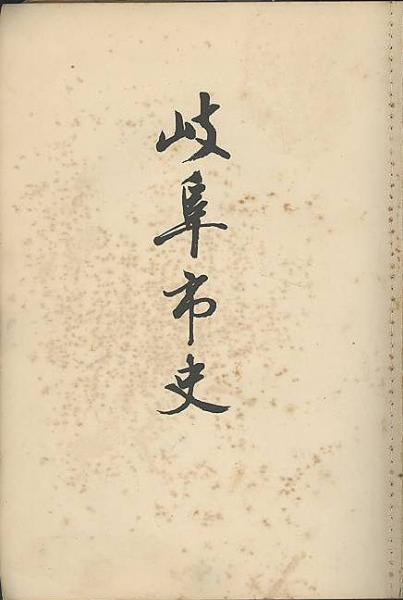 岐阜市史